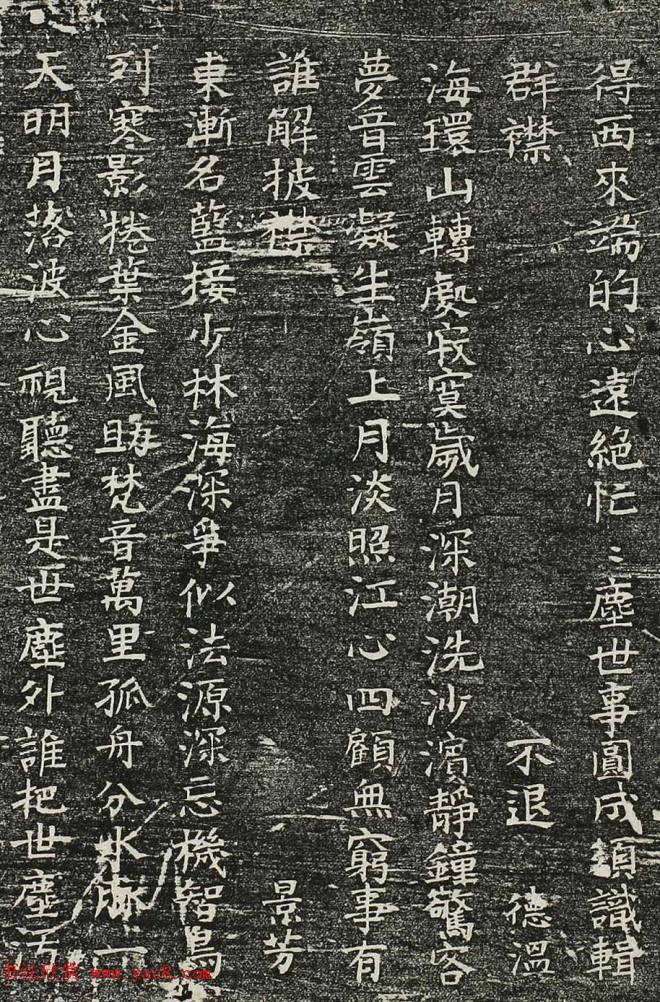 得西來端的心遠絕忙〻塵世事圓成須識輯
群襟 不退 德溫
海環山轉處寂寞歲月深潮洗沙濱靜鐘驚客
夢音雲凝生嶺上月淡照江心四顧無窮事有
誰解披襟 景芳
東漸名藍接少林海深爭似法源深忘機智鳥
列寒影捲葉金風助梵音萬里孤舟分水脉一
天明月落波心視聽盡是世塵外誰把世塵
www.